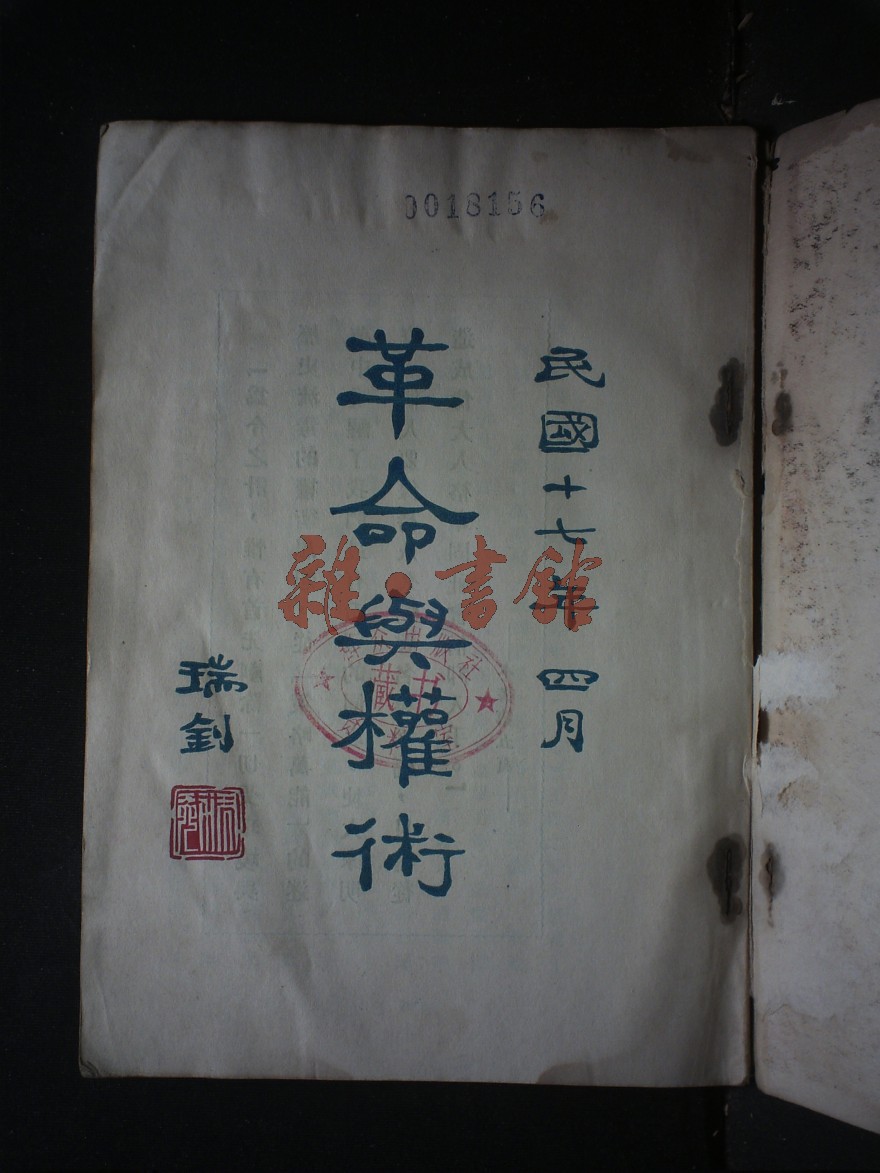 0018156
民國十七年 四月
革命與權術
瑞釗
雜·書館
藏书